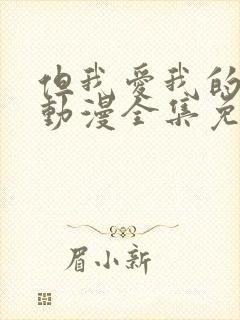 但我愛我的
動漫全集免
眉小新